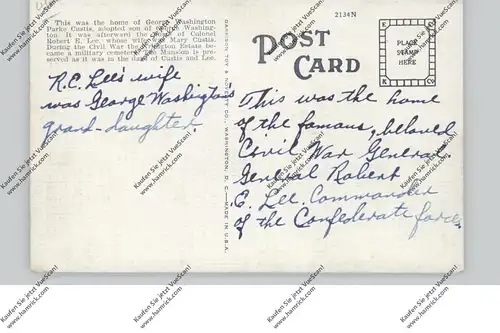 This was the home of George Washington
Parke Custis, adopted son of George Washing-
ton. It was afterward the home of Colonel
Robert E. Lee, whose wife was Mary Custis.
During the Civil War the Arlington Estate be-
came a military cemetery. The Mansion is pre-
served as it was in the days of Custis and Lee.
R.E. Lee's wife
was George Washington's
grand-daughter.
GARRISON TOY & NOVELTY CO., WASHINGTON, D. C.—MADE IN U.S.A.
2134N
POST
CARD
PLACE
STAMP
HERE
This was the home
of the famous, beloved
Civil War General.
General Robert
E. Lee. Commander
of the Confederate forces.
Kaufen Sie jetzt VueScan!
www.hamrick.com